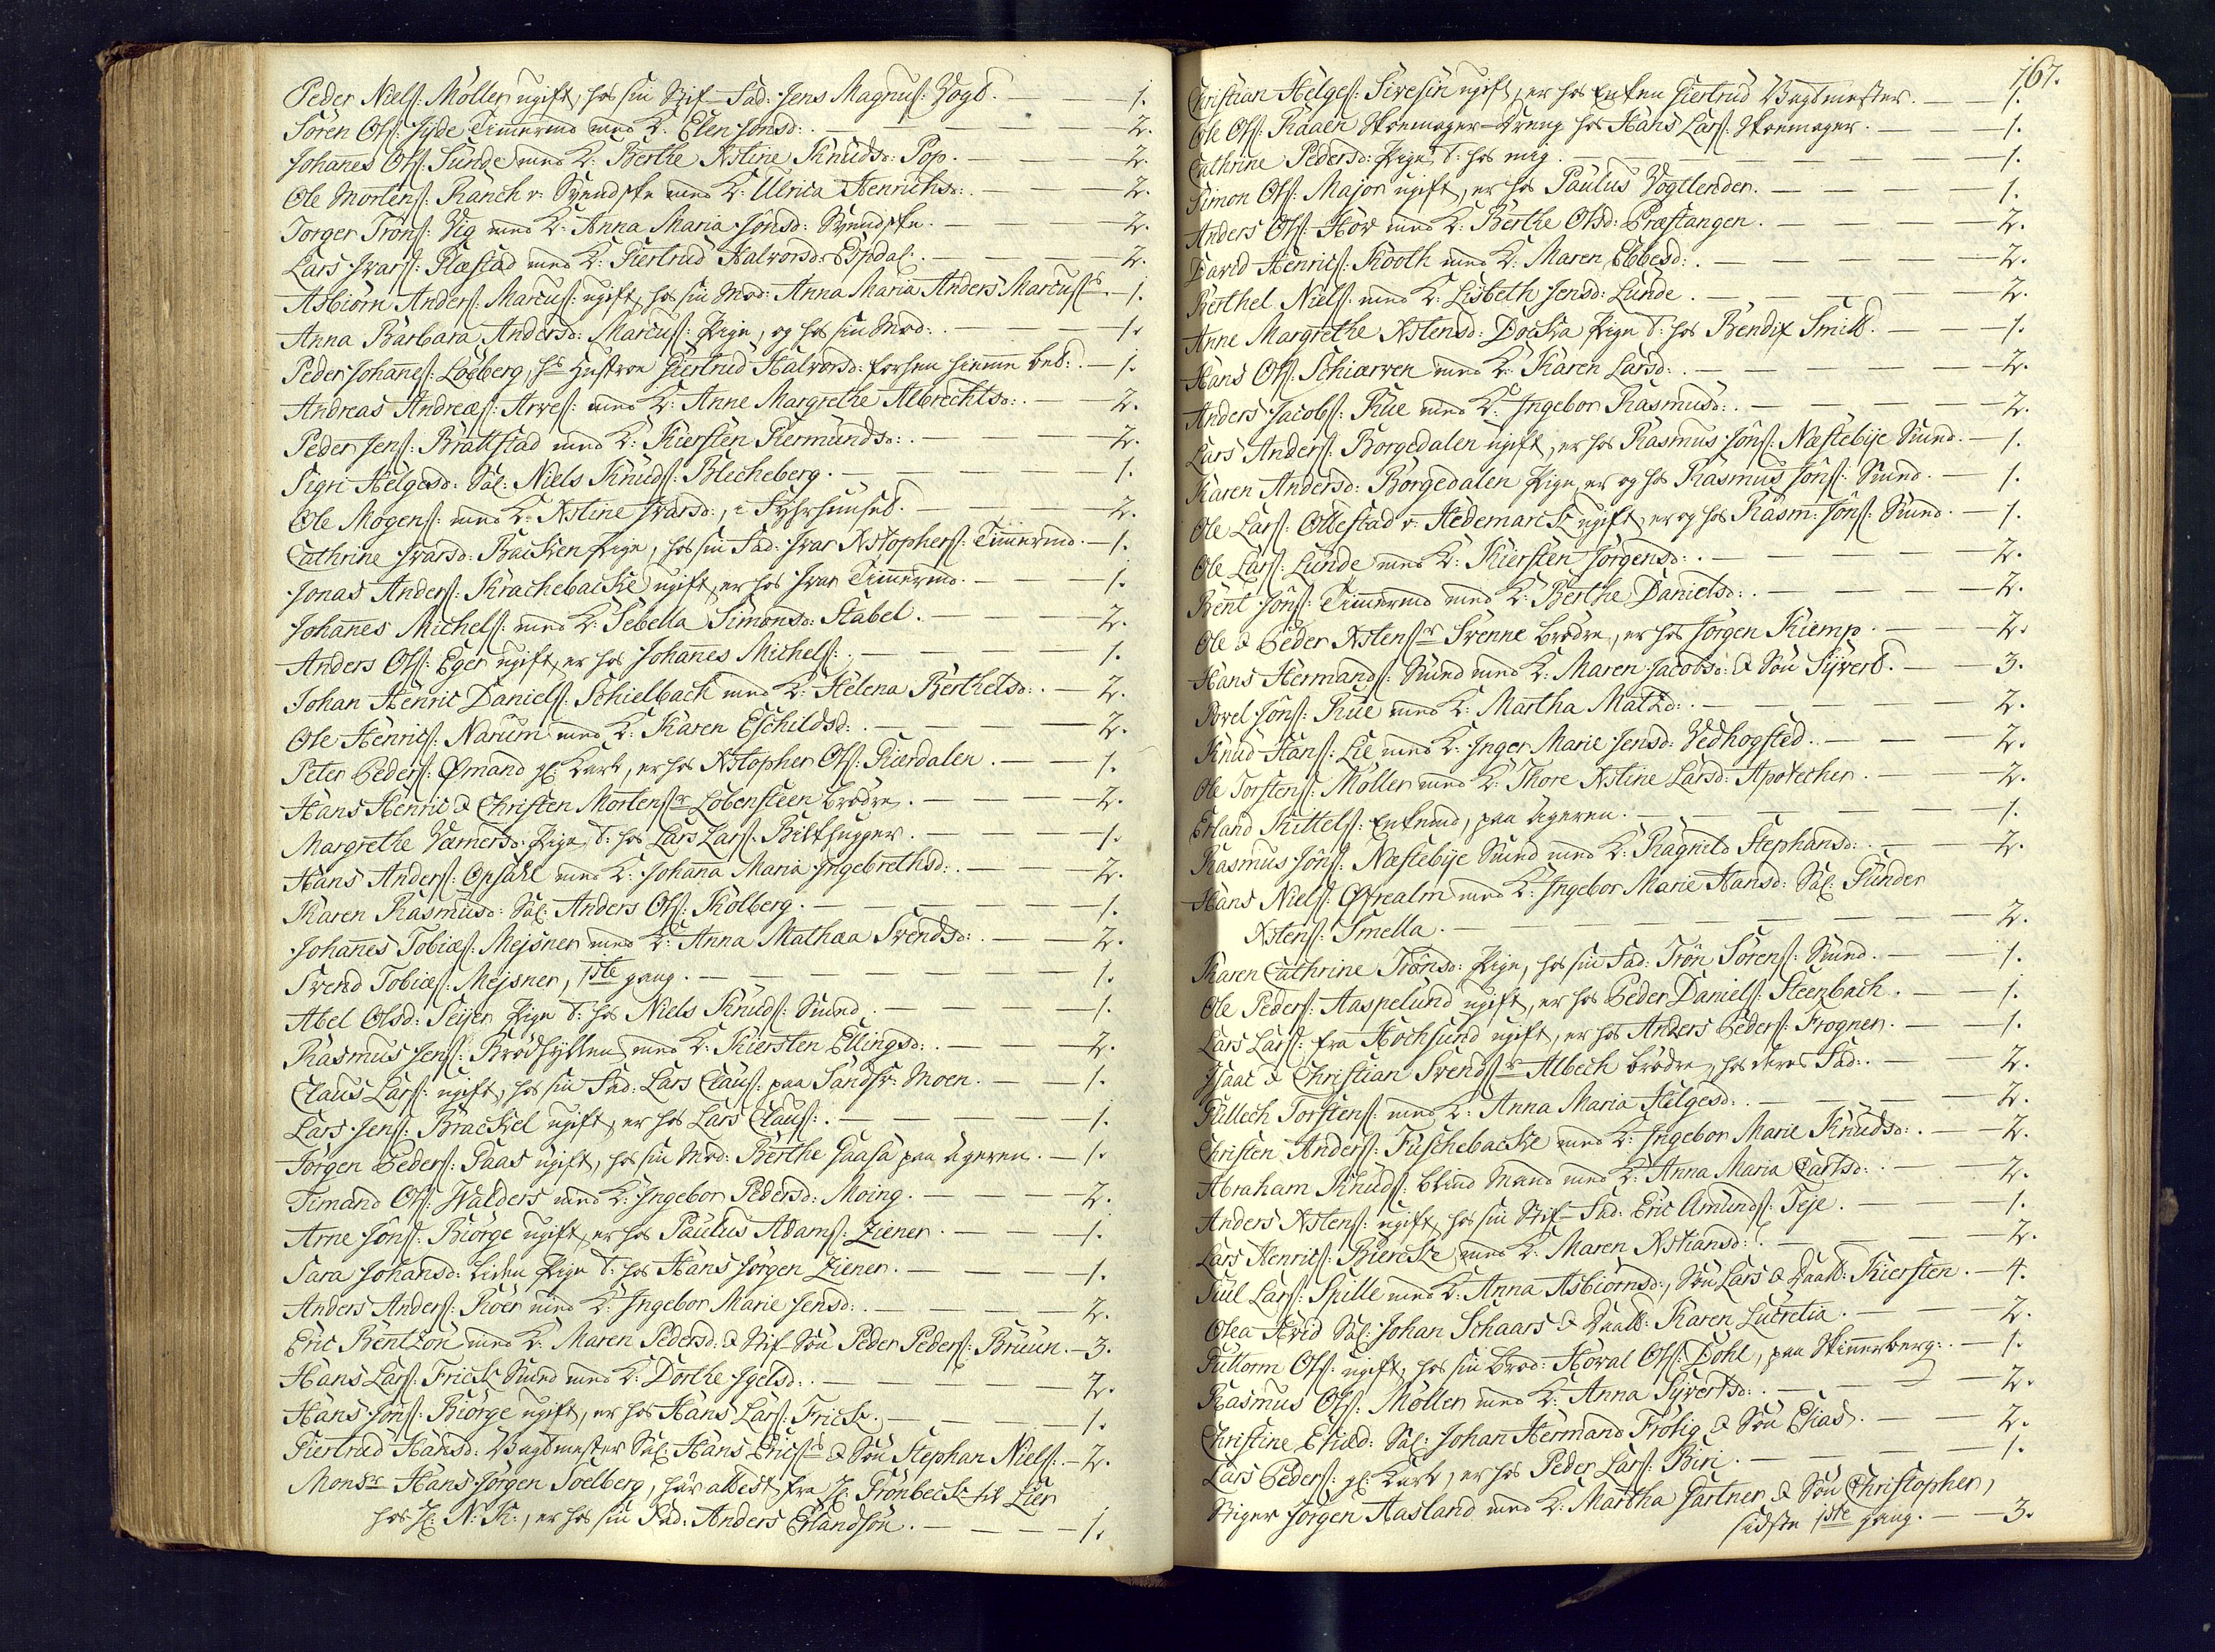 Peder Nielſ: Möller ugift, hos sin Stif-Fad: Jens Magnuſ: Vogt. — 1.
Sören Olſ: Jyde Timerm̄d med K: Elen Jonsd: — 2.
Johañes Olſ: Sunde med K: Berthe Xstine Knudsd: Pop. — 2.
Ole Mortenſ: Ranch v: Svendske med K: Ulrica Henrichsd: — 2.
Torger Tronſ: Vig med K: Anna Maria Jonsd: Svendske. — 2.
Lars Ivarſ: Plæstad med K: Giertrud Halvorsd: Espdal. — 2.
Asbiörn Anderſ: Marcuſ: ugift, hos sin Mod: Anna Maria Anders Marcuſes. — 1.
Anna Barbara Andersd: Marcuſ: Pige, og hos sin Mod: — 1.
Peder Johañeſ: Löeberg, hs Hustroe Giertrud Halvorsd: forhen hiemme bet: — 1.
Andreas Andreæſ: Arveſ: med K: Anne Margrethe Albrechtsd: — 2.
Peder Jenſ: Brattstad med K: Kiersten Germundsd: — 2.
Sigri Helgesd: Sal: Niels Knudſ: Blecheberg. — 1.
Ole Mogenſ: med K: Xstine Ivarsd:, i Fyhrhuuset. — 2.
Cathrine Ivarsd: Backen Pige, hos sin Fad: Ivar Xstopherſ: Tim̄erm̄d. — 1.
Jonas Anderſ: Krachebacke ugift, er hos Ivar Tim̄erm̄d. — 1.
Johañes Michelſ: med K: Sebella Simonsd: Stabel. — 2.
Anders Olſ: Eger ugift, er hos Johañes Michelſ: — 1.
Johan Henric Danielſ: Schielbach med K: Helena Berthelsd: — 2.
Ole Henricſ: Narum med K: Karen Eschildsd: — 2.
Peter Pederſ: Ømand gl: Karl, er hos Xstopher Olſ: Gierdalen. — 1.
Hans Henric & Christen Mortenſr Löbensteen brödre. — 2.
Margrethe Værnersd: Pige, t: hos Lars Larſ: Bilthugger. — 1.
Hans Anderſ: Opsahl med K: Johana Maria Ingebrethsd: — 2.
Karen Rasmusd: Sal: Anders Olſ: Kolberg. — 1.
Johañes Tobiæſ: Mejsner med K: Anna Mathæa Svendsd: — 2.
Svend Tobiæſ: Mejsner, 1ste gang. — 1.
Abel Olsd: Seijer Pige t: hos Niels Knudſ: Smed. — 1.
Rasmus Jenſ: Brödhylten med K: Kiersten Ellingsd: — 2.
Claus Larſ: ugift, hos sin Fad: Lars Clauſ: paa Sandsv: Moen. — 1.
Lars Jenſ: Brackel ugift, er hos Lars Clauſ: — 1.
Jörgen Pederſ: Gaas ugift, hos sin Mod: Berthe Gaasa paa Ageren. — 1.
Timand Olſ: Walders med K: Ingebor Pedersd: Moing. — 2.
Arne Jonſ: Biörge ugift, er hos Paulus Adamſ: Ziener. — 1.
Sara Johansd: liden Pige t: hos Hans Jörgen Ziener. — 1.
Anders Anderſ: Röer med K: Ingebor Marie Jensd: — 2.
Eric Bentzön med K: Maren Pedersd: & Stif-Sön Peder Pederſ: Bruun. — 3.
Hans Larſ: Frick Smed med K: Dorthe Igelsd: — 2.
Hans Jonſ: Biörge ugift, er hos Hans Larſ: Frick. — 1.
Giertrud Hansd: Vagtmester Sal: Hans Ericſes & Sön Stephan Nielſ: — 2.
Monsr Hans Jörgen Soelberg, hav attest fra H: Grönbeck til Lier
hos H: N: K:, er hos sin Fad: Anders Erlandsön. — 1.
167.
Christian Helgeſ: Sivesin ugift, er hos Enken Giertrud Vagtmester. — 1.
Ole Olſ: Kaaen Skoemager-dreng hos Hans Larſ: Skoemager. — 1.
Cathrine Pedersd: Pige t: hos mig. — 1.
Simon Olſ: Major ugift, er hos Paulus Vogtlender. — 1.
Anders Olſ: Höv med K: Berthe Olsd: Præstangen. — 2.
David Henricſ: Kooth med K: Maren Ebbesd: — 2.
Berthel Nielſ: med K: Lisbeth Jensd: Lunde. — 2.
Anne Margrethe Xstensd: Docka Pige t: hos Bendix Smitt. — 1.
Hans Olſ: Schiærven med K: Karen Larsd: — 2.
Anders Jacobſ: Rue med K: Ingebor Rasmusd: — 2.
Lars Anderſ: Borgedalen ugift, er hos Rasmus Jonſ: Næstebije Smed. — 1.
Karen Andersd: Borgedalen Pige er og hos Rasmus Jonſ: Smed. — 1.
Ole Larſ: Ottestad v: Hedemarck ugift, er og hos Rasm: Jonſ: Smed. — 1.
Ole Larſ: Lunde med K: Kiersten Jörgensd: — 2.
Bent Jonſ: Tim̄erm̄d med K: Berthe Danielsd: — 2.
Ole & Peder Xstenſr Svenne brödre, er hos Jörgen Kiemp. — 2.
Hans Hermandſ: Smed med K: Maren Jacobsd: & Sön Syvert. — 3.
Povel Jonſ: Rue med K: Martha Matzd: — 2.
Knud Hanſ: Lie med K: Inger Marie Jensd: Vedhogsted. — 2.
Ole Torstenſ: Möller med K: Thore Xstine Larsd: Apothecher. — 2.
Erland Kittelſ: Enkem̄d, paa Ageren. — 1.
Rasmus Jonſ: Næstebije Smed med K: Ragnild Stephansd: — 2.
Hans Nielſ: Ofrealm med K: Ingebor Marie Hansd: Sal: Gunder
Xstenſ: Smella. — 2.
Karen Cathrine Tronsd: Pige, hos sin Fad: Tron Sörenſ: Smed. — 1.
Ole Pederſ: Aaspelund ugift, er hos Peder Danielſ: Steenbach. — 1.
Lars Larſ: fra Hochsund ugift, er hos Anders Pederſ: Frogner. — 1.
Isaac & Christian Svendſr Albech brödre, hos deres Fad: — 2.
Gullech Torstenſ: med K: Anna Maria Helgesd: — 2.
Christen Anderſ: Fuschebacke med K: Ingebor Marie Knudsd: — 2.
Abraham Knudſ: blind Mand med K: Anna Maria Carlsd: — 2.
Anders Xstenſ: ugift, hos sin Stif-Fad: Eric Amundſ: Teje. — 1.
Lars Henricſ: Bierck med K: Maren Xstiansd: — 2.
Juul Larſ: Spille med K: Anna Asbiörnsd:, Sön Lars & Daatt: Kiersten. — 4.
Olea Hvid Sal: Johan Schaars & Daatt: Karen Lucretia. — 2.
Guttorm Olſ: ugift, hos sin brod: Hovel Olſ: Dohl, paa Skinnerberg: — 1.
Rasmus Olſ: Möller med K: Anna Syvertsd: — 2.
Christine Eliæd: Sal: Johan Hermand Frölig & Sön Elias. — 2.
Lars Pederſ: gl: Karl, er hos Peder Larſ: Biri. — 1.
Stiger Jörgen Aasland med K: Martha Gartner & Sön Christopher,
sidste 1ste gang. — 3.